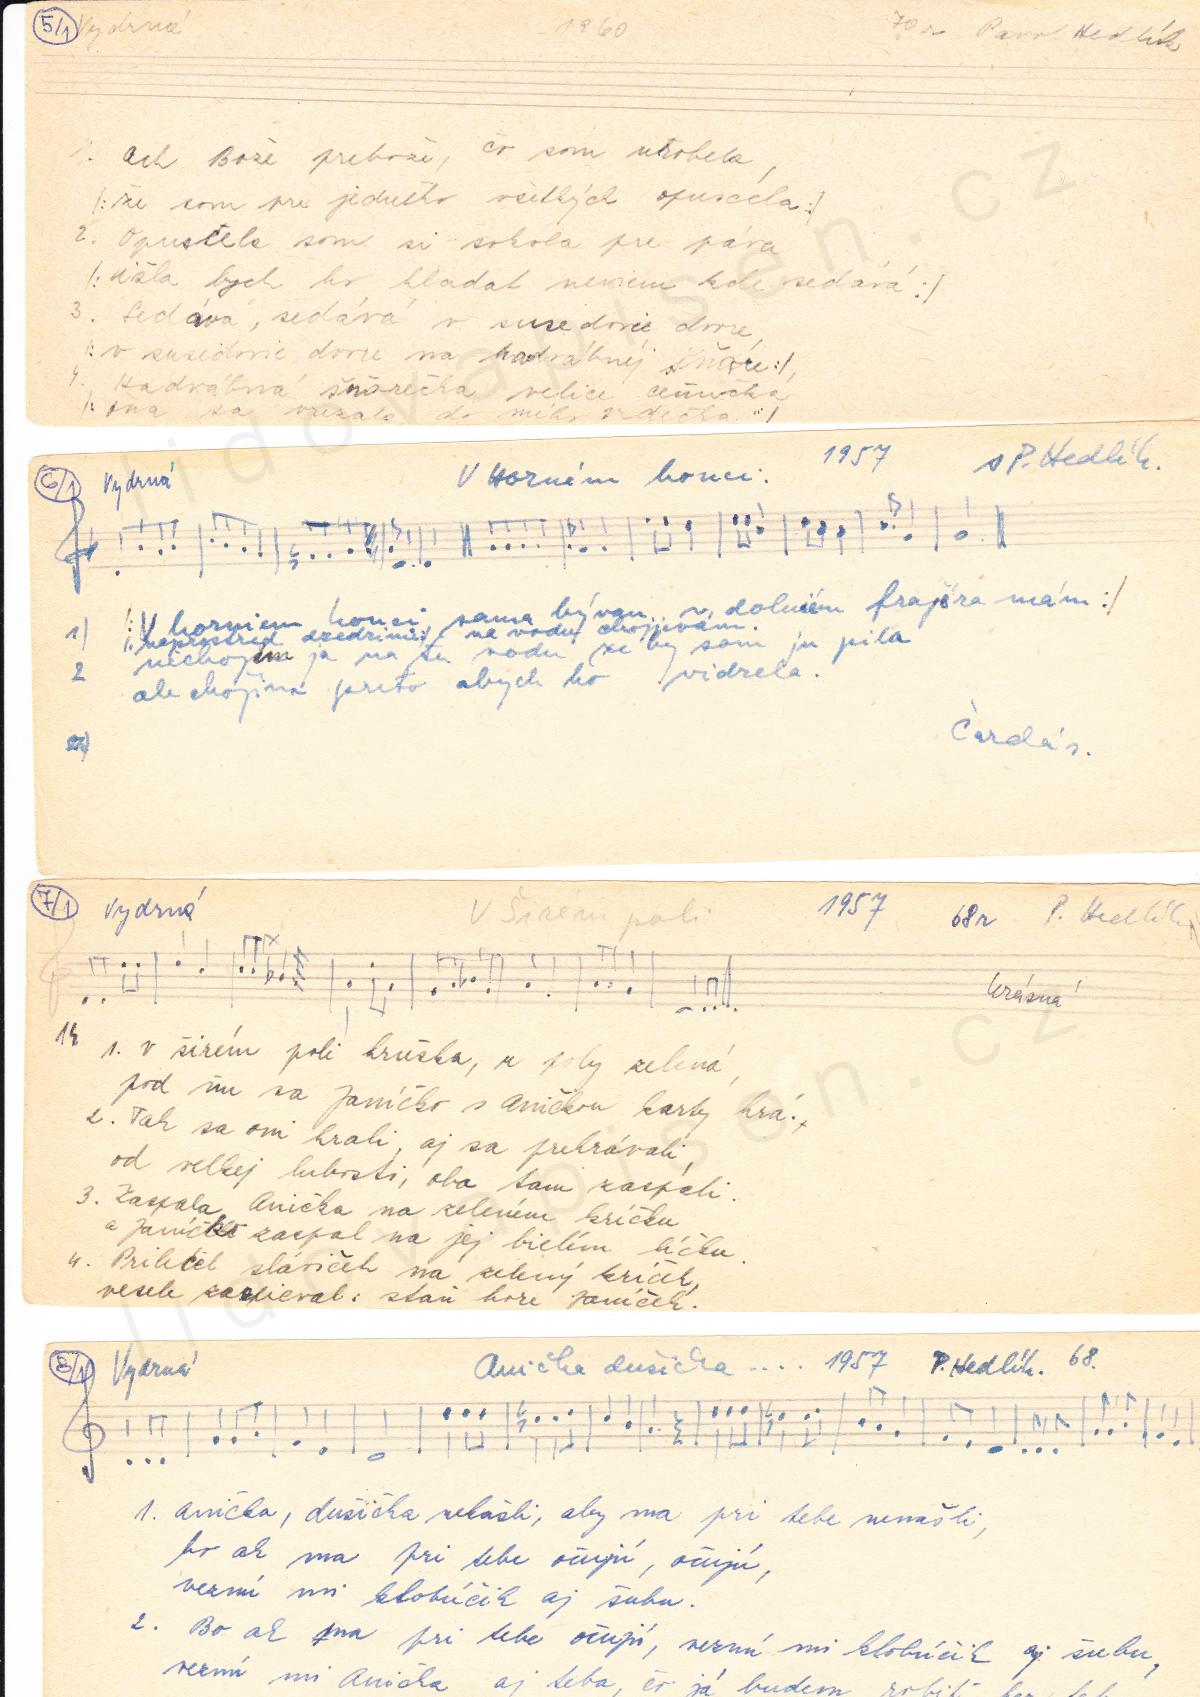 5/1 Vydrná 1960 70r Pavol Hedlík
1. Ach Bože prebože, čo som urobela,
/: že som pre jedného všetkých opuscela :/
2. Opustela som si sokola pre páva
/: išla bych ho hladat neviem kde sedává :/
3. Sedává, sedává v susedovic dvore,
/: v susedovic dvore na hadvábnéj šnóre :/,
4. Hadvábná šnórečka velice cenučká
/: ona sa do mého srdečka :/
6/1 Vydrná V Horném konci. 1957 s P. Hedlík.
1) /: V horniem konci, sama bývam, v dolniém frajéra mám :/
/: naprostred dzedzini :/ na vodu chojjívám.
2 nechojim ja na tu vodu že by som ju pila
ale chojím preto abych ho vidzela.
Čardáš.
7/1 Vydrná V Širém poli 1957 68r P. Hedlík
krásná
1. V širém poli hruška, z poly zelená,
pod ňu sa Janíčko s Aničkou karty hrá.
2. Tak sa oni hrali, aj sa prehrávali,
od velkej lubosti, oba tam zaspali.
3. Zaspala Anička na zeleném kríčku
a Janíčko zaspal na jej bielím líčku.
4. Priletel slávíček na zelený kríček,
vesele zaspieval: staň hore Janíček.
8/1 Vydrná Anička dušička .... 1957 P. Hedlík. 68.
1. Anička, dušička nekašli, aby ma pri tebe nenašli,
bo ak ma pri tebe očujú, očujú,
vezmú mi klobúčik aj šubu.
2. Bo ak ma pri tebe očujú, vezmú mi klobúčik aj šubu,
vezmú mi Anička aj teba, čo já budem robiť bez teba
lidovapisen.cz
lidovapisen.cz